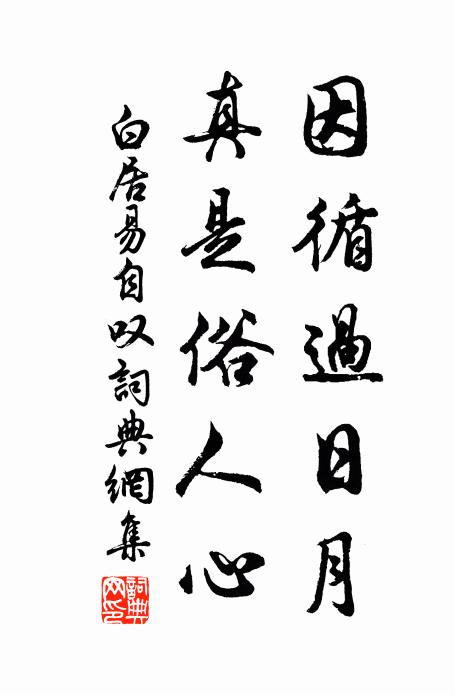 因循過日月
真是俗人心
白居易自叹詞典網集
詞典
网印